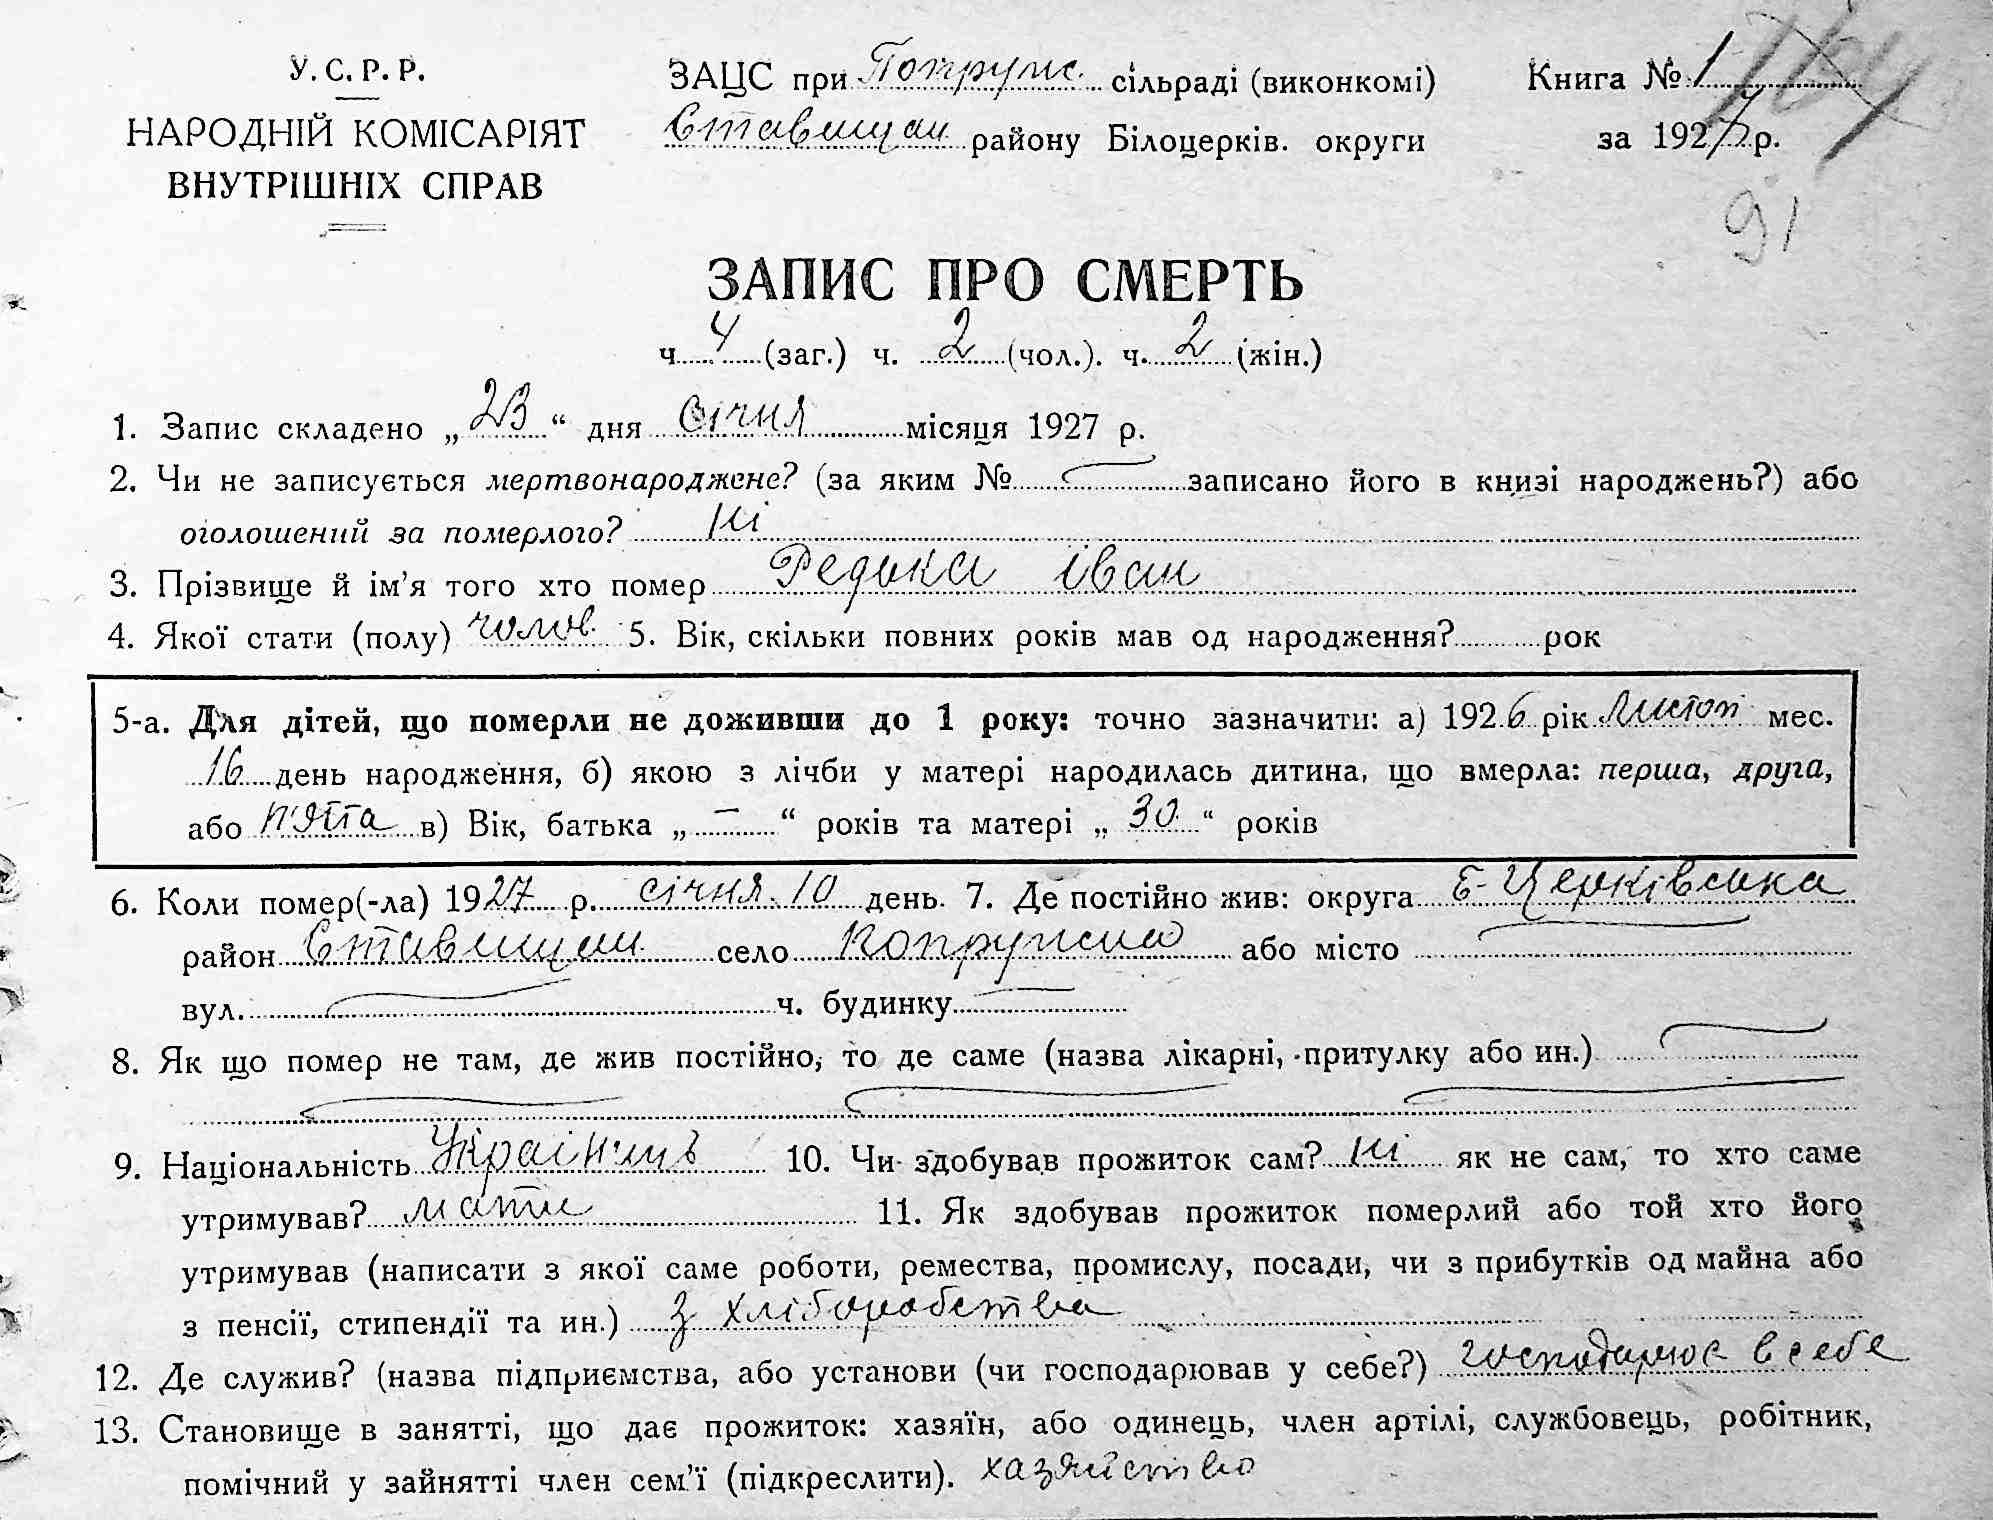 У. С. Р. Р.
НАРОДНІЙ КОМІСАРІЯТ
ВНУТРІШНІХ СПРАВ
ЗАЦС при Попруж. сільраді (виконкомі)
Ставищан району Білоцерків. округи
Книга № 1
за 1927 р.
91
ЗАПИС ПРО СМЕРТЬ
ч. 4 (заг.) ч. 2 (чол.). ч. 2 (жін.)
1. Запис складено „23“ дня січня місяця 1927 р.
2. Чи не записується мертвонароджене? (за яким № записано його в книзі народжень?) або
оголошений за померлого? ні
3. Прізвище й ім’я того хто помер Редька Іван
4. Якої стати (полу) чолов. 5. Вік, скільки повних років мав од народження? рок
5-а. Для дітей, що померли не доживши до 1 року: точно зазначити: а) 1926 рік Листоп мес.
16 день народження, б) якою з лічби у матері народилась дитина, що вмерла: перша, друга,
або п'ята в) Вік, батька „ — “ років та матері „ 30 “ років
6. Коли помер(-ла) 1927 р. січня 10 день. 7. Де постійно жив: округа Б-Церківська
район Ставищан село Попружна або місто
вул. ч. будинку
8. Як що помер не там, де жив постійно, то де саме (назва лікарні, притулку або ин.)
9. Національність Українць 10. Чи здобував прожиток сам? ні як не сам, то хто саме
утримував? мати 11. Як здобував прожиток померлий або той хто його
утримував (написати з якої саме роботи, ремества, промислу, посади, чи з прибутків од майна або
з пенсії, стипендії та ин.) з хліборобства
12. Де служив? (назва підприємства, або установи (чи господарював у себе?) господарює в себе
13. Становище в занятті, що дає прожиток: хазяїн, або одинець, член артілі, службовець, робітник,
помічний у зайнятті член сем’ї (підкреслити). хазяйство